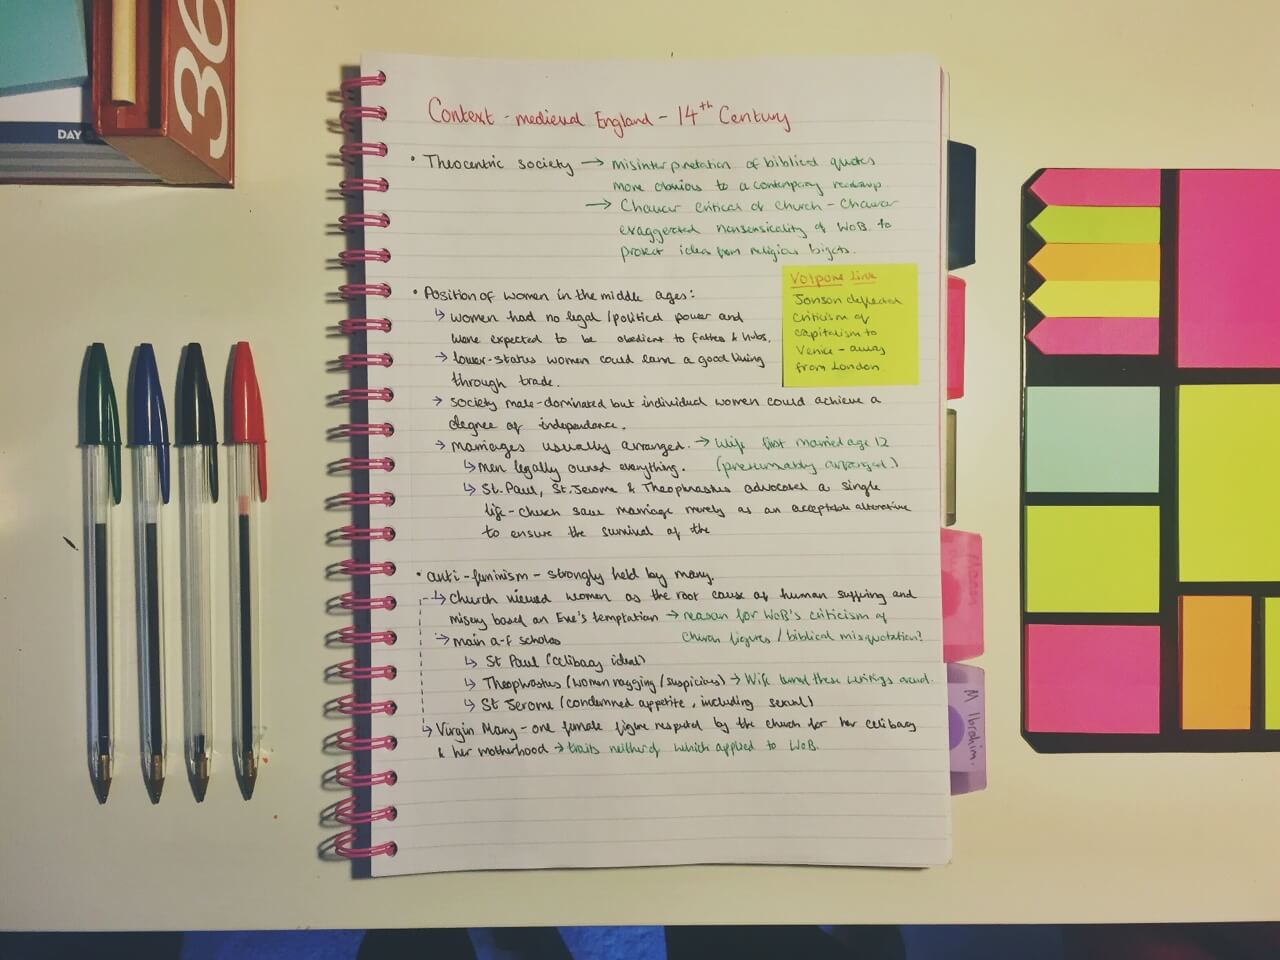 36
DAY
Context - medieval England - 14th Century
• Theocentric society → misinterpretation of biblical quotes
more obvious to a contemporary readership
→ Chaucer critical of church - Chaucer
exaggerated nonsensicality of WoB to
protect ideas from religious bigots.
Volpone link
Jonson deflected
criticism of
capitalism to
Venice - away
from London
• Position of women in the middle ages:
↳ women had no legal/political power and
were expected to be obedient to fathers & hubs.
→ lower-status women could earn a good living
through trade.
→ society male-dominated but individual women could achieve a
degree of independence.
→ marriages usually arranged. → Wife first married age 12
↳ Men legally owned everything. (presumably arranged.)
↳ St. Paul, St. Jerome & Theophrastus advocated a single
life - church saw marriage merely as an acceptable alternative
to ensure the survival of the
• anti-feminism - strongly held by many.
↳ Church viewed women as the root cause of human suffering and
misery based on Eve's temptation → reason for WoB's criticism of
→ main a-f scholars church figures / biblical misquotation?
↳ St Paul (celibacy ideal)
↳ Theophrastus (women nagging/suspicious) → Wife turned these writings around.
↳ St Jerome (condemned appetite, including sexual)
↳ Virgin Mary - one female figure respected by the church for her celibacy
& her motherhood → traits neither of which applied to WoB.
M Ibrahim.